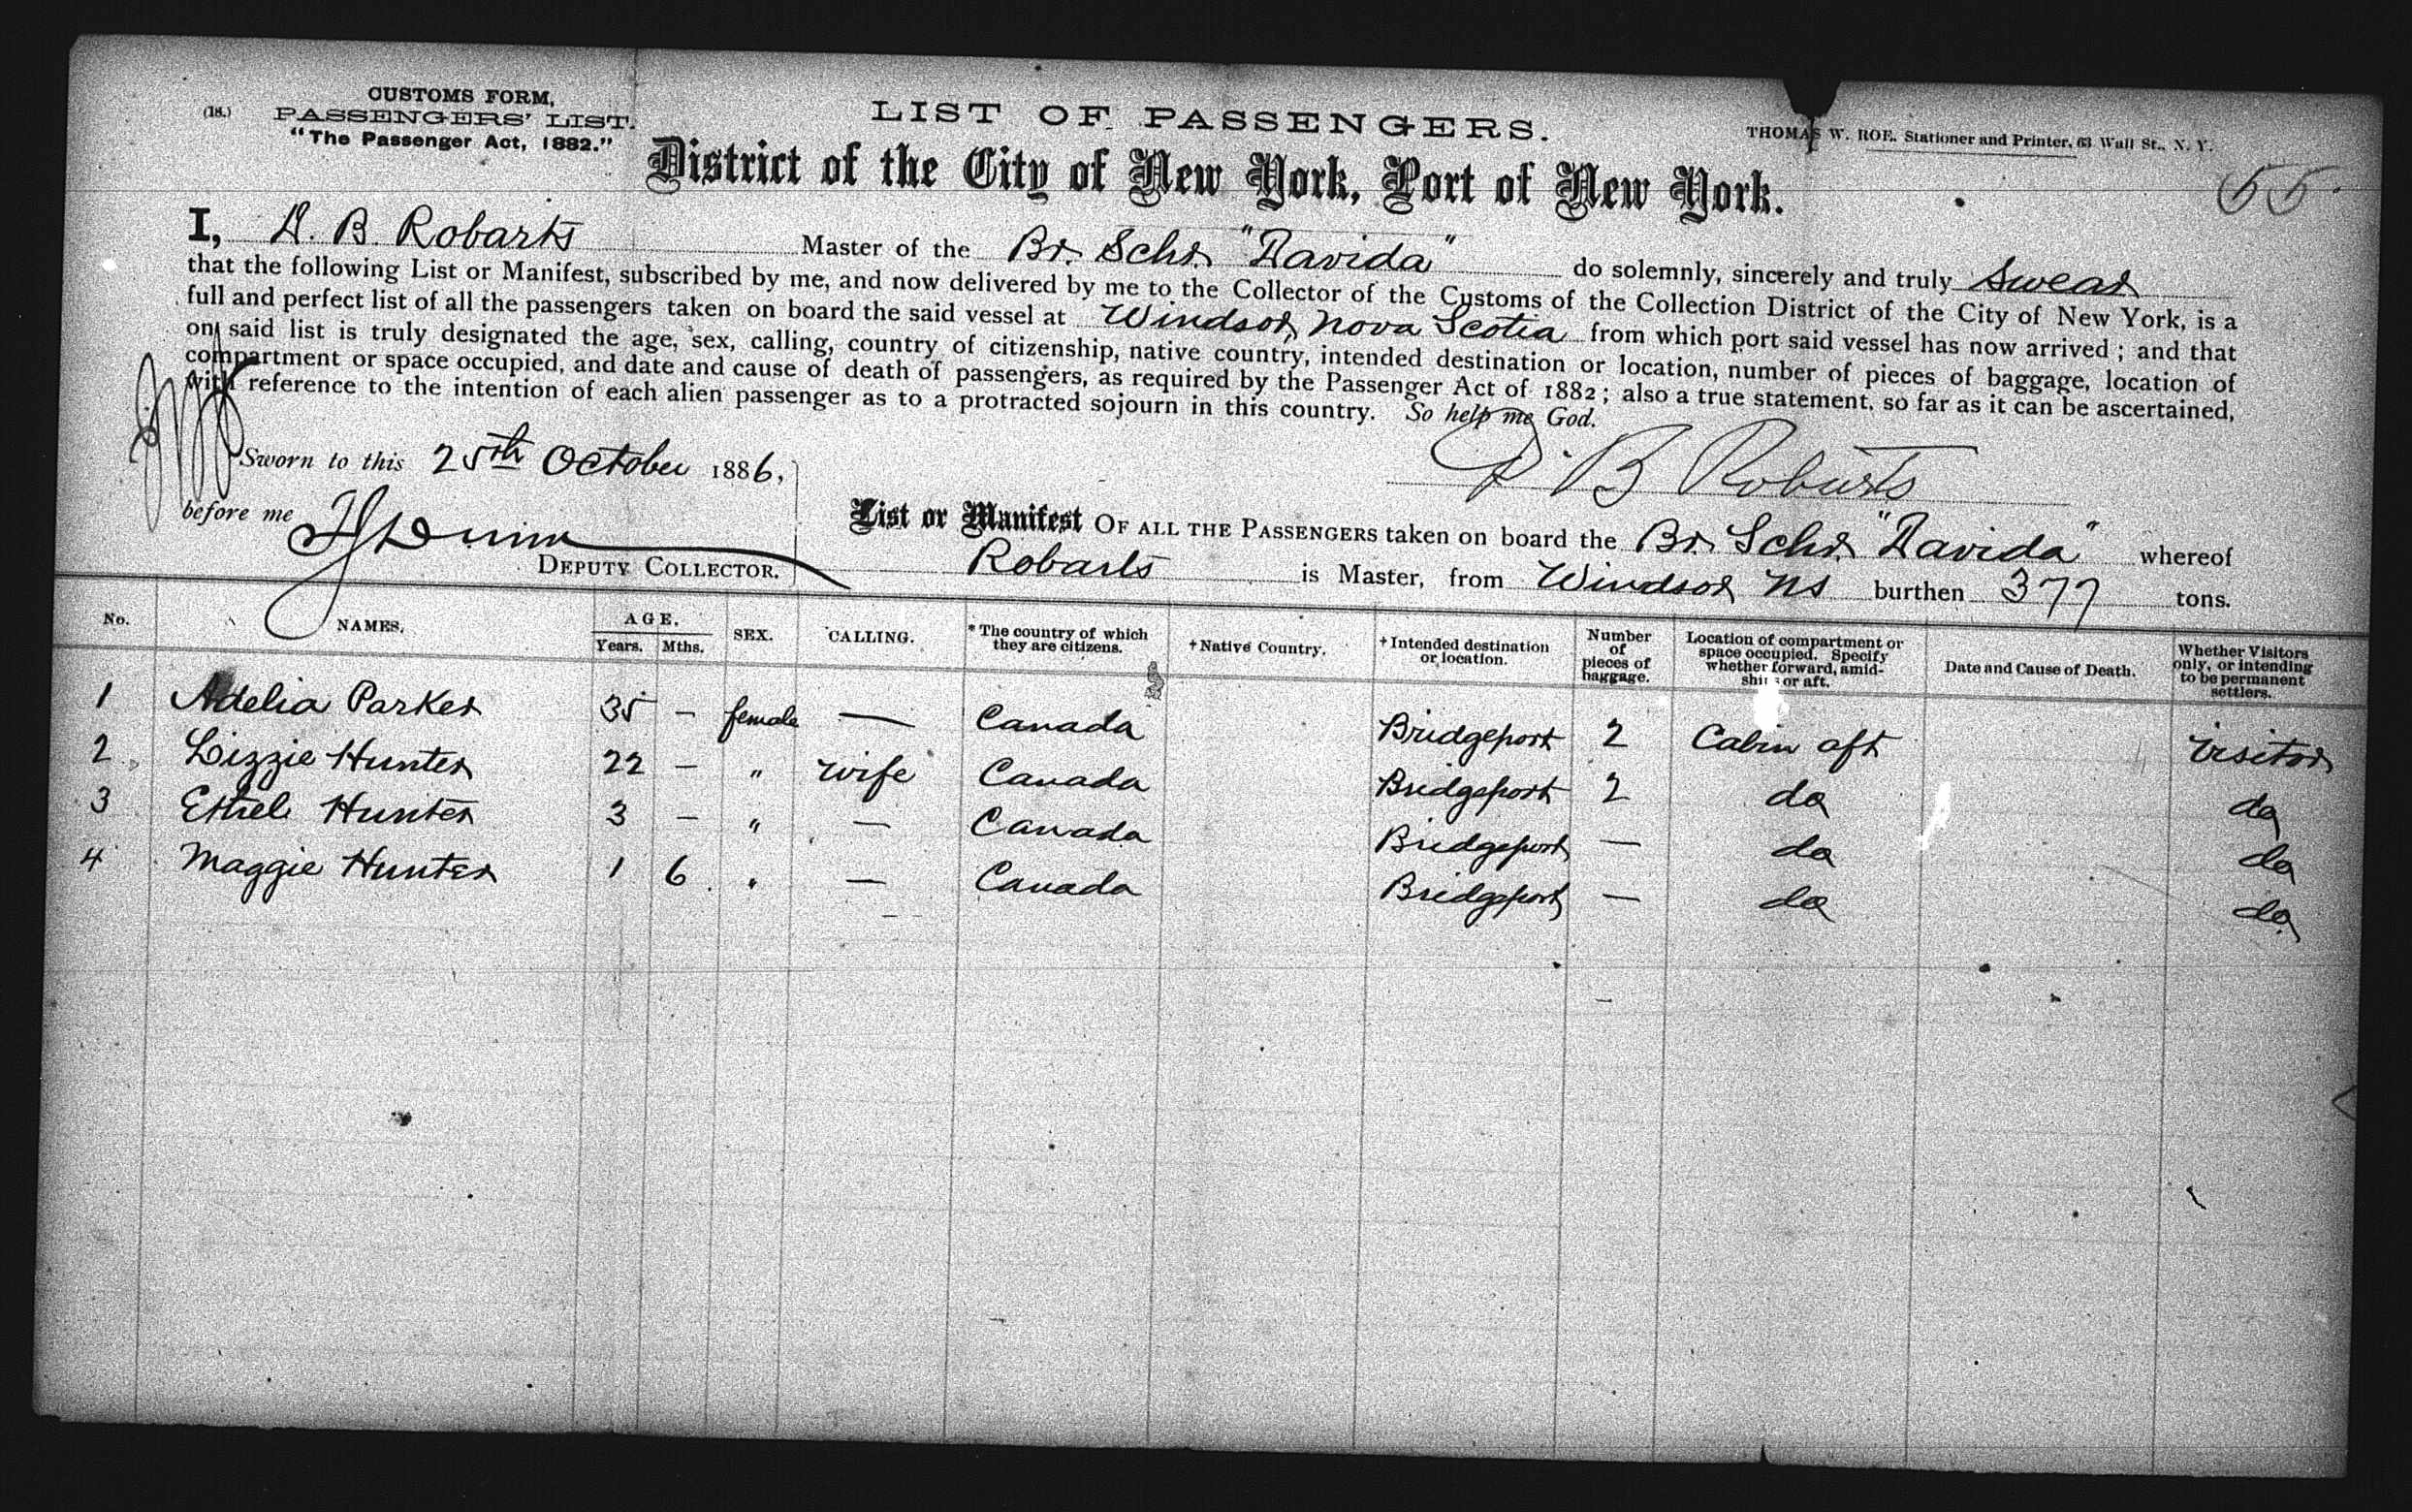 CUSTOMS FORM,
(18.) PASSENGERS' LIST.
"The Passenger Act, 1882."
LIST OF PASSENGERS.
THOMAS W. ROE. Stationer and Printer, 63 Wall St., N. Y.
District of the City of New York, Port of New York.
55
I, D. B. Robarts Master of the Br. Schr. "Davida" do solemnly, sincerely and truly Swear
that the following List or Manifest, subscribed by me, and now delivered by me to the Collector of the Customs of the Collection District of the City of New York, is a
full and perfect list of all the passengers taken on board the said vessel at Windsor, Nova Scotia from which port said vessel has now arrived; and that
on said list is truly designated the age, sex, calling, country of citizenship, native country, intended destination or location, number of pieces of baggage, location of
compartment or space occupied, and date and cause of death of passengers, as required by the Passenger Act of 1882; also a true statement, so far as it can be ascertained,
with reference to the intention of each alien passenger as to a protracted sojourn in this country. So help me God.
Sworn to this 25th October 1886,
D. B Robarts
before me
DEPUTY COLLECTOR.
List or Manifest OF ALL THE PASSENGERS taken on board the Br. Schr. "Davida" whereof
Robarts is Master, from Windsor NS burthen 377 tons.
No. NAMES. AGE. Years. Mths. SEX. CALLING. *The country of which they are citizens. †Native Country. †Intended destination or location. Number of pieces of baggage. Location of compartment or space occupied. Specify whether forward, amidships or aft. Date and Cause of Death. Whether Visitors only, or intending to be permanent settlers.
1 Adelia Parker 35 – female — Canada Bridgeport 2 Cabin aft visitor
2 Lizzie Hunter 22 – " wife Canada Bridgeport 2 do do
3 Ethel Hunter 3 – " — Canada Bridgeport — do do
4 Maggie Hunter 1 6 " — Canada Bridgeport — do do